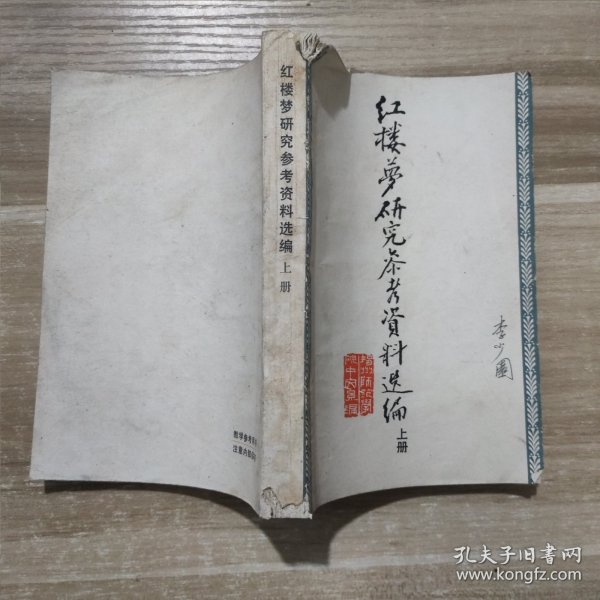 红楼梦研究参考资料选编 上册
红楼梦研究参考資料选编
上册
李少園
教学参考
注意内部
孔夫子旧书网
www.kongfz.com